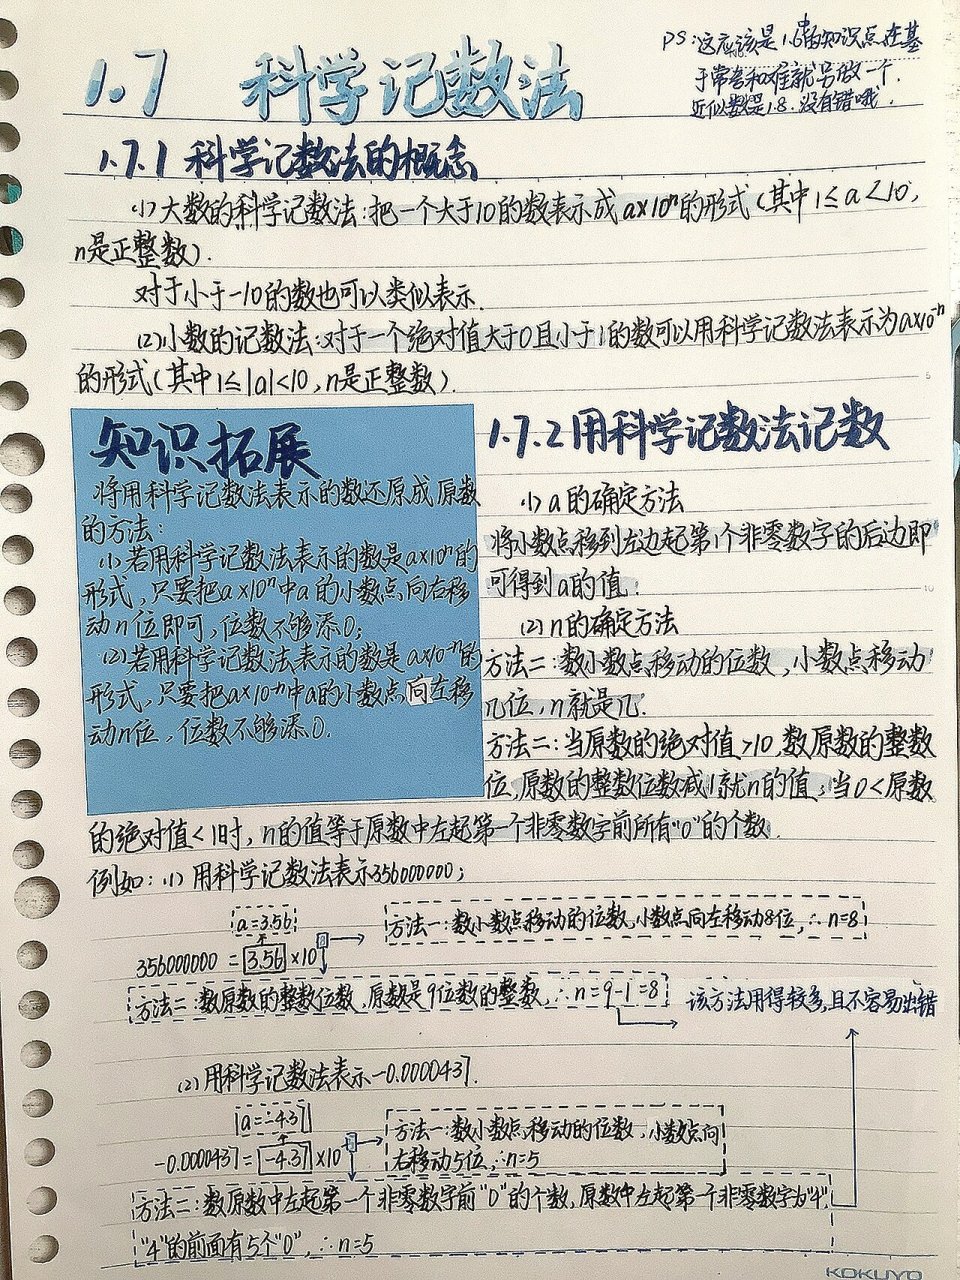 1.7 科学记数法
PS:这应该是1.6的知识点,在基
于常考和难就另做一个.
近似数是1.8.没有错哦.
1.7.1 科学记数法的概念
(1)大数的科学记数法:把一个大于10的数表示成a×10ⁿ的形式(其中1≤a<10,
n是正整数).
对于小于-10的数也可以类似表示.
(2)小数的记数法:对于一个绝对值大于0且小于1的数可以用科学记数法表示为a×10⁻ⁿ
的形式(其中1≤|a|<10,n是正整数).
知识拓展
将用科学记数法表示的数还原成原数
的方法:
(1)若用科学记数法表示的数是a×10ⁿ的
形式,只要把a×10ⁿ中a的小数点向右移
动n位即可,位数不够添0;
(2)若用科学记数法表示的数是a×10⁻ⁿ的
形式,只要把a×10⁻ⁿ中a的小数点向左移
动n位,位数不够添0.
1.7.2用科学记数法记数
(1)a的确定方法
将小数点移到左边起第1个非零数字的后边即
可得到a的值;
(2)n的确定方法
方法二:数小数点移动的位数,小数点移动
几位,n就是几.
方法二:当原数的绝对值>10,数原数的整数
位,原数的整数位数减1就n的值;当0<原数
的绝对值<1时,n的值等于原数中左起第一个非零数字前所有"0"的个数.
例如:(1)用科学记数法表示356000000;
a=3.56
方法一:数小数点移动的位数,小数点向左移动8位,∴n=8
356000000=3.56×10
方法二:数原数的整数位数,原数是9位数的整数,∴n=9-1=8
该方法用得较多,且不容易出错
(2)用科学记数法表示-0.0000437.
a=-4.37
方法一:数小数点移动的位数,小数点向
右移动5位,∴n=5
-0.0000437=-4.37×10
方法二:数原数中左起第一个非零数字前"0"的个数,原数中左起第一个非零数字为"4",
"4"的前面有5个"0",∴n=5
KOKUYO